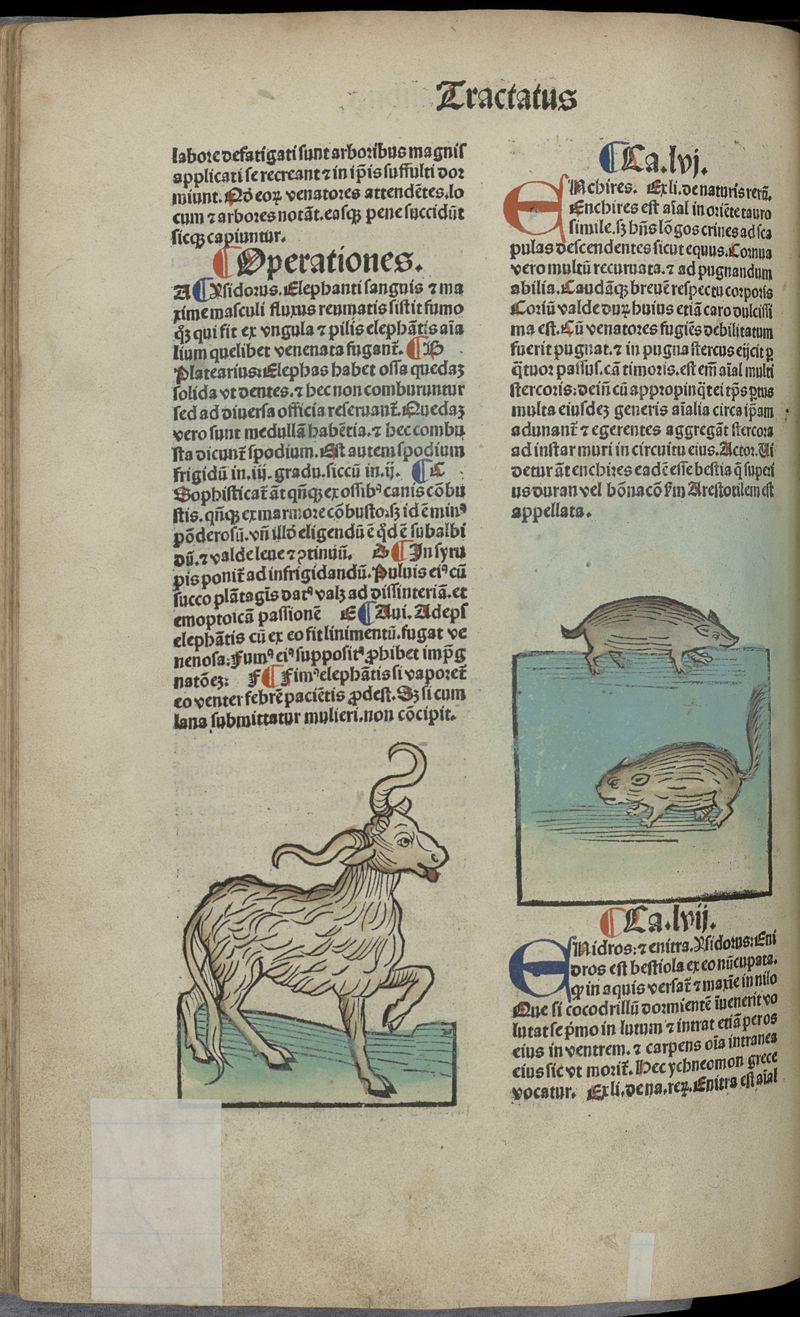 Tractatus
labore defatigati sunt arboribus magnis
applicati se recreant ⁊ in ip̄is suffulti dor
miunt. Nō eoꝝ venatores attendētes. lo
cum ⁊ arbores notāt. easqꝫ pene succidūt
sicqꝫ capiuntur.
¶Operationes.
A ¶Ysidorus. Elephanti sanguis ⁊ ma
xime masculi fluxus reumatis sistit fumo
qꝫ qui fit ex vngula ⁊ pilis elephātis aīa
lium quelibet venenata fugant᷑. ¶B
Platearius: Elephas habet ossa quedaꝫ
solida vt dentes. ⁊ hec non comburuntur
sed ad diuersa officia reseruant᷑. Quedaꝫ
vero sunt medullā habētia. ⁊ hec combu
sta dicunt᷑ spodium. Est autem spodium
frigidū in .iij. gradu. siccū in .ij. ¶C
Sophisticat᷑ āt qn̄qꝫ ex ossibꝰ canis cōbu
stis. qn̄qꝫ ex marmore cōbusto. sꝫ id ē minꝰ
pōderosū. vn̄ illd̓ eligendū ē qd̓ ē subalbi
dū. ⁊ valde leue ⁊ ꝯtinuū. D ¶In syru
pis ponit᷑ ad infrigidandū. Puluis eiꝰ cū
succo plātagīs datꝰ valꝫ ad dissinteriā. et
emoptoicā passionē E ¶Aui. Adeps
elephātis cū ex eo fit linimentū. fugat ve
nenosa: Fumꝰ eiꝰ suppositꝰ ꝓhibet imp̄g
natōeꝫ: F ¶Fimꝰ elephātis si vaporet᷑
eo venter febrē paciētis ꝓdest. Sꝫ si cum
lana submittatur mulieri. non cōcipit.
¶Ca. lvj.
ENchires. Ex li. de naturis rerū.
Enchires est aīal in oriēte tauro
simile. sꝫ hn̄s lōgos crines ad sca
pulas descendentes sicut equus. Cornua
vero multū recuruata. ⁊ ad pugnandum
abilia. Caudāqꝫ breuē respectu corporis
Coriū valde duꝝ huius etiā caro dulcissi
ma est. Cū venatores fugiēs debilitatum
fuerit pugnat. ⁊ in pugna stercus eijcit ꝑ
q̈tuor passus. cā timoris. est em̄ aīal multi
stercoris: dein̄ cū appropinq̈t ei tp̄s ꝑtus
multa eiusdeꝫ generis aīalia circa ip̄am
adunant᷑ ⁊ egerentes aggregāt stercora
ad instar muri in circuitu eius. Actor. Ui
detur āt enchires eadē esse bestia q̄ superi
us duran vel bōnacō ẜm Arestotilem est
appellata.
¶Ca. lvij.
ENidros: ⁊ enitra. Ysidorus: Eni
dros est bestiola ex eo nūcupata.
ꝙ in aquis versat᷑ ⁊ maxīe in nilo
Que si cocodrillū dormientē īuenerit vo
lutat se p̄mo in lutum ⁊ intrat etiā per os
eius in ventrem. ⁊ carpens oīa intranea
eius sic vt morit᷑. Hec ychneomon grece
vocatur. Ex li. de na. reꝝ. Enitra est aīal